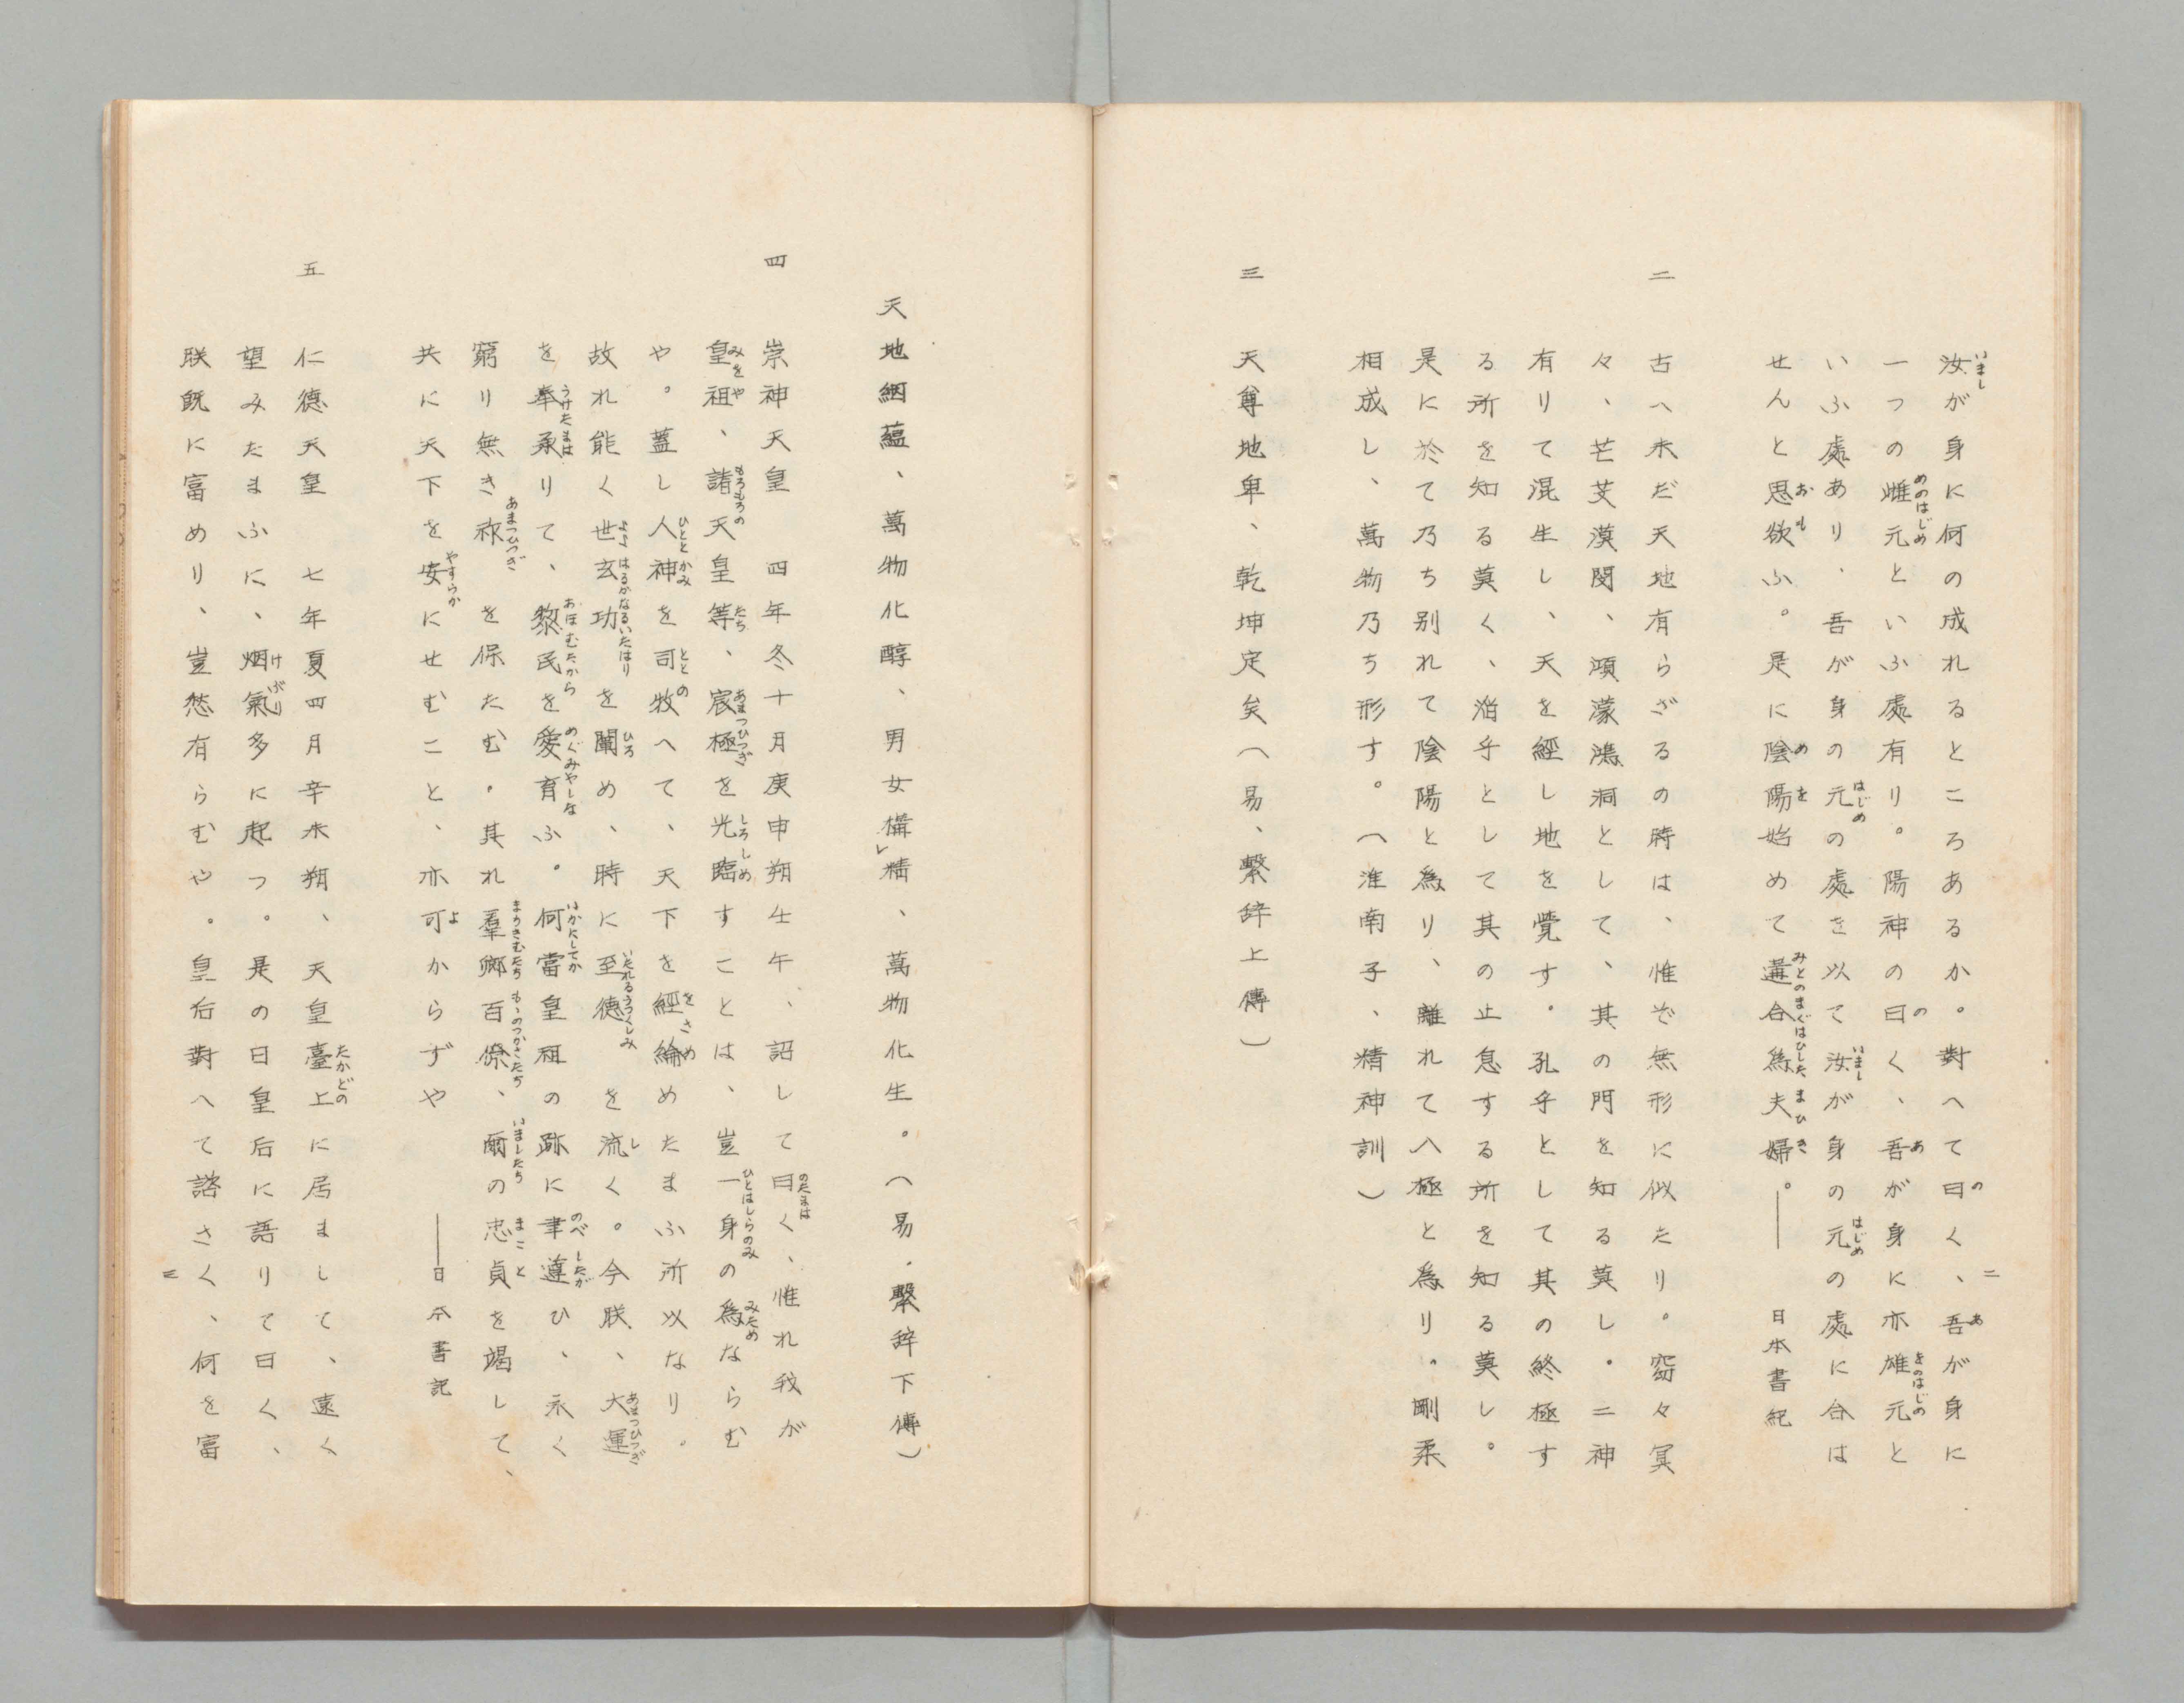 汝が身に何の成れるところあるか。對へて曰く、吾が身に
一つの雌元といふ處有り。陽神の曰く、吾が身に亦雄元と
いふ處あり、吾が身の元の處を以て汝が身の元の處に合は
せんと思欲ふ。是に陰陽始めて遘合為夫婦。――日本書紀
二
二
古へ未だ天地有らざるの時は、惟ぞ無形に似たり。窈々冥
々、芒芠漠閔、澒濛鴻洞として、其の門を知る莫し。二神
有りて混生し、天を經し地を營す。孔乎として其の終極す
る所を知る莫く、滔乎として其の止息する所を知る莫し。
是に於て乃ち別れて陰陽と為り、離れて八極と為り。剛柔
相成し、萬物乃ち形す。（淮南子、精神訓）
三
天尊地卑、乾坤定矣（易、繫辞上傳）
天地絪蘊、萬物化醇、男女構レ精、萬物化生。（易．繫辞下傳）
四
崇神天皇　四年冬十月庚申朔壬午、詔して曰く、惟れ我が
皇祖、諸天皇等、宸極を光臨すことは、豈一身の為ならむ
や。蓋し人神を司牧へて、天下を經綸めたまふ所以なり．
故れ能く世玄功を闡め、時に至徳を流く。今朕、大運
を奉承りて、黎民を愛育ふ。何當皇祖の跡に聿遵ひ、永く
窮り無き祚を保たむ．其れ羣卿百僚、爾の忠貞を竭して、
共に天下を安にせむこと、亦可からずや　――日本書記
五
仁德天皇　七年夏四月辛未朔、天皇臺上に居まして、遠く
望みたまふに、烟氣多に起つ。是の日皇后に語りて曰く、
朕既に富めり、豈愁有らむや。皇后對へて諮さく、何を富
三